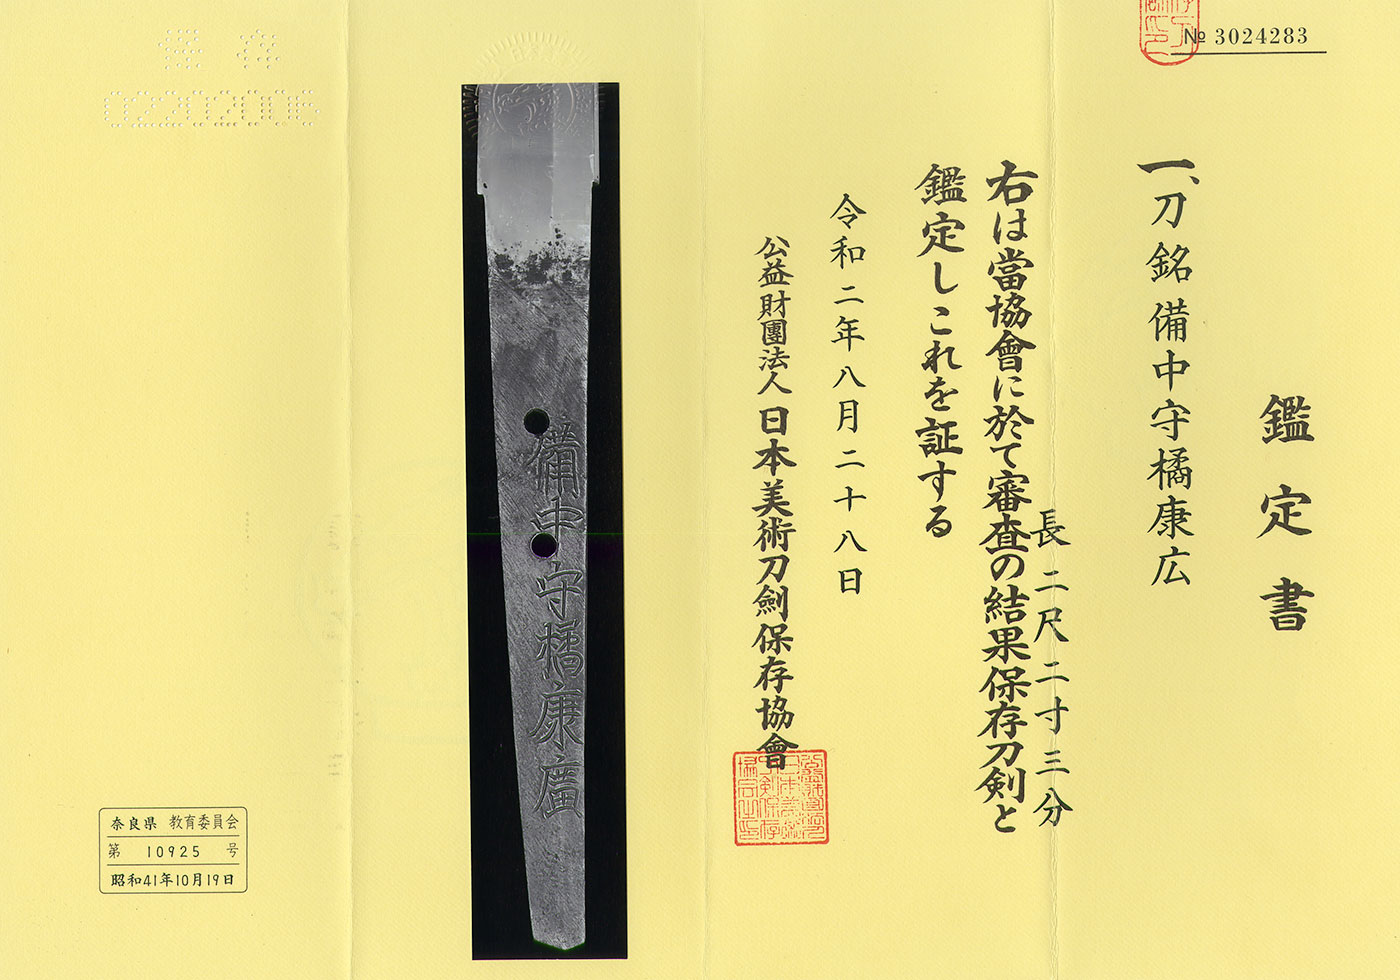 № 3024283
鑑定書
一、刀 銘 備中守橘康広
長 二尺二寸三分
右は當協會に於て審査の結果保存刀剣と
鑑定しこれを証する
令和二年八月二十八日
公益財團法人 日本美術刀劍保存協會
備中守橘康廣
保存
02202006
奈良県 教育委員会
第 10925 号
昭和41年10月19日